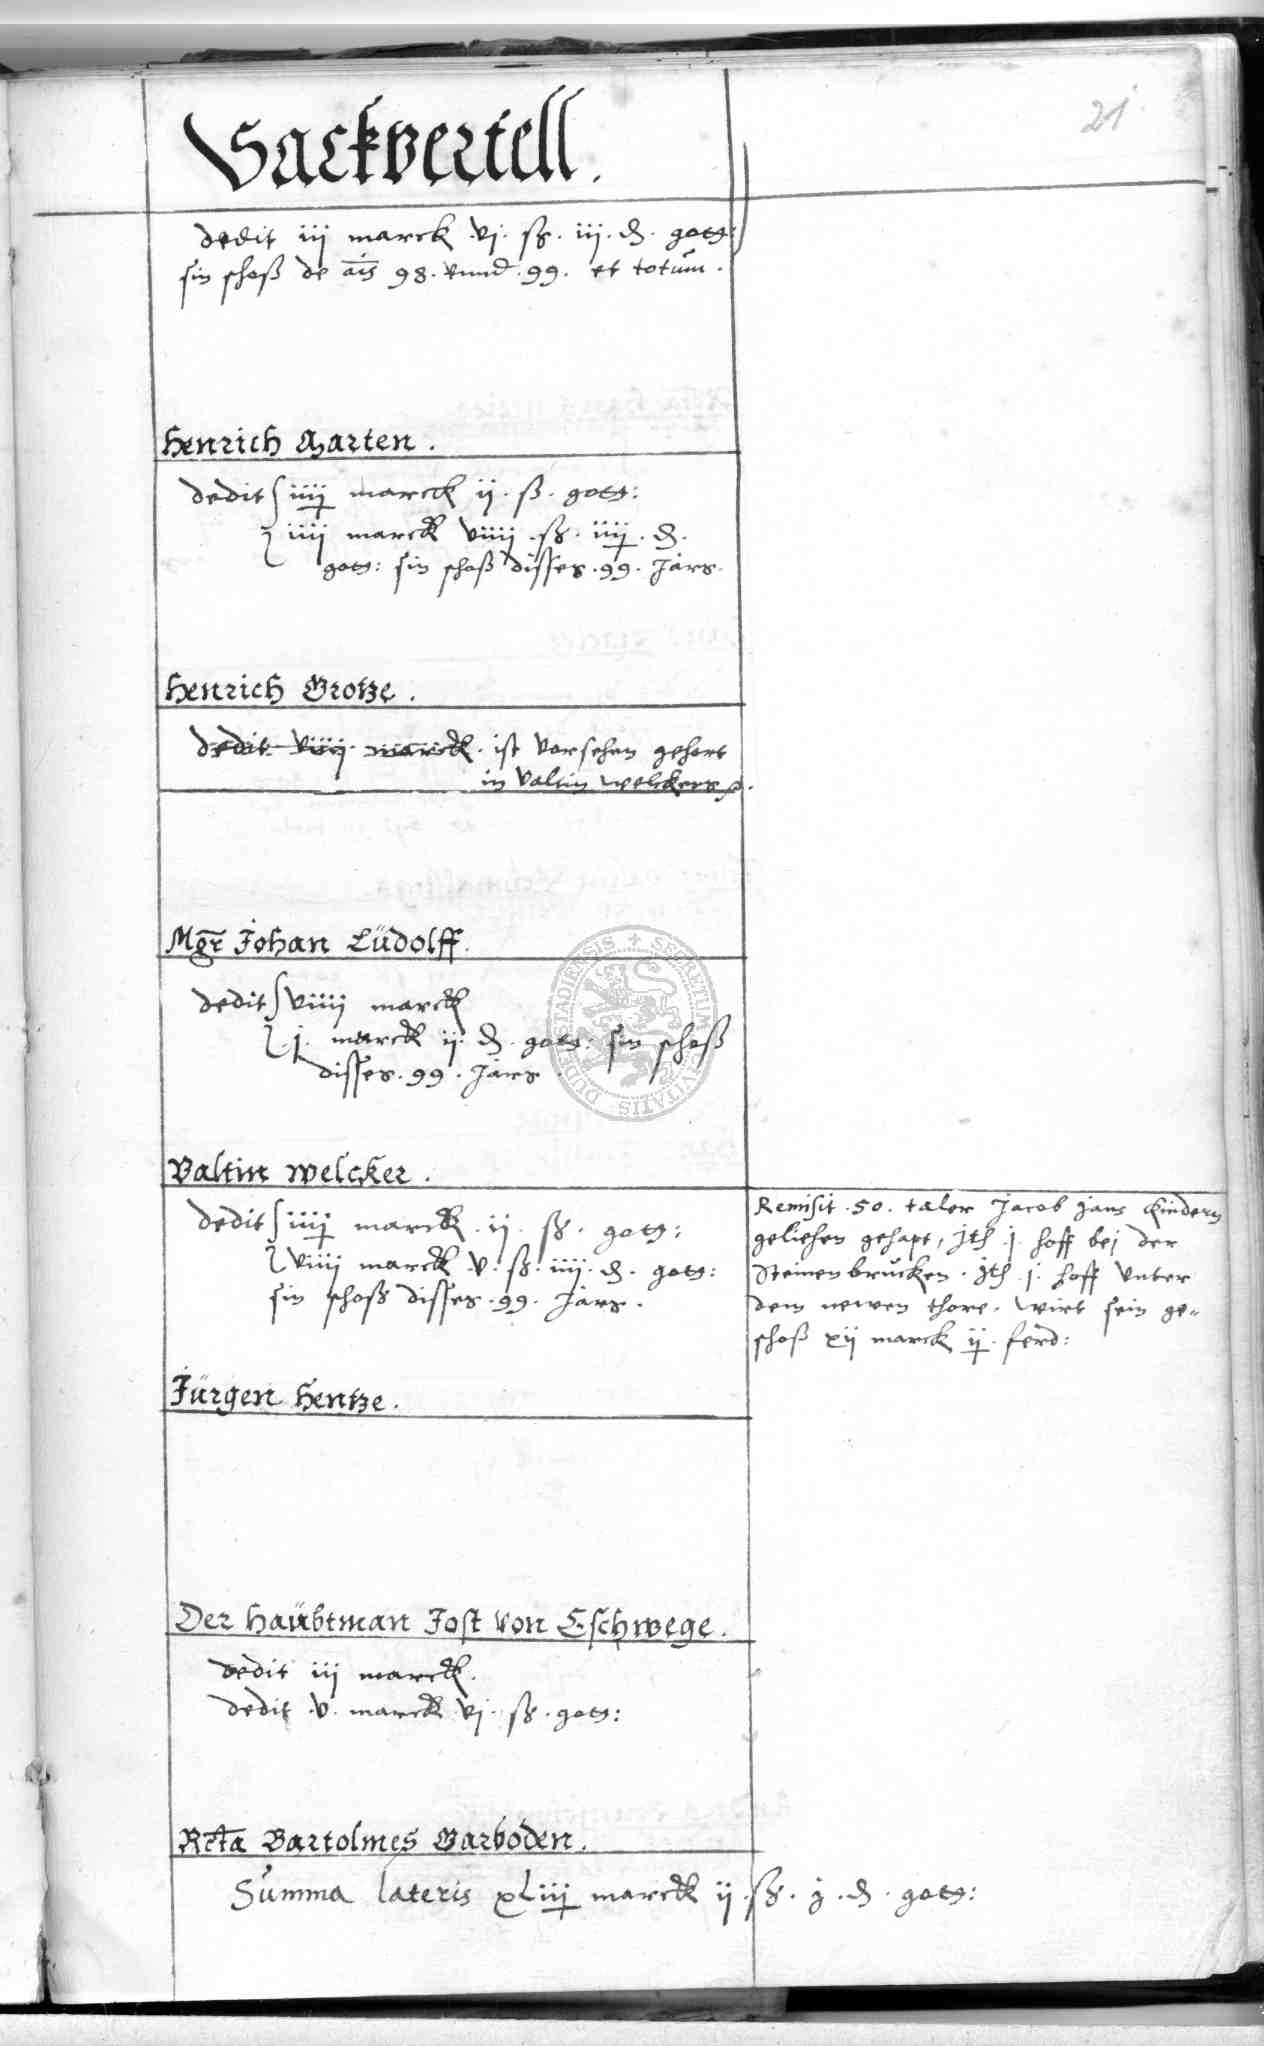 Sackvertell.
21
dedit iij marck vj. ß. iij. d. gotg:
sin schoß de ais 98. unnd. 99. et totum.
Henrich Garten.
dedit iiij marck ij. ß. gotg:
iiij marck viiij. ß. iiij. d.
gotg: sin schoß disses. 99. Jars.
Henrich Grotze.
dedit viiij. marck. ist vorsehen gehort
in Valtin welckers
Mgr Johan Lüdolff.
dedit viiij marck
j. marck ij. d. gotg: sin schoß
disses. 99. Jars
Valtin welcker.
dedit iiij marck. ij. ß. gotg:
viiij marck. v. ß. iiij. d. gotg:
sin schoß disses. 99. Jars.
Remisit. 50. taler Jacob Jans Kindern
geliehen gehapt, Jth. j. hoff bej der
Steinenbrucken. Jth. j. hoff unter
dem newen thore. wirt sein ge-
schoß xij marck ij. ferd:
Jürgen Hentze.
Der Haübtman Jost von Eschwege.
dedit iij marck.
dedit. v. marck vj. ß. gotg:
Rcta Bartolmes Barboden.
Summa lateris xLiij marck ij. ß. j. d. gotg:
SECRETUM CIVITATIS DUDERSTADIENSIS